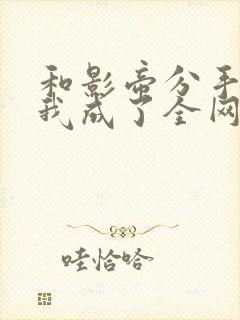 和影帝分手
我成了全网
哇恰哈